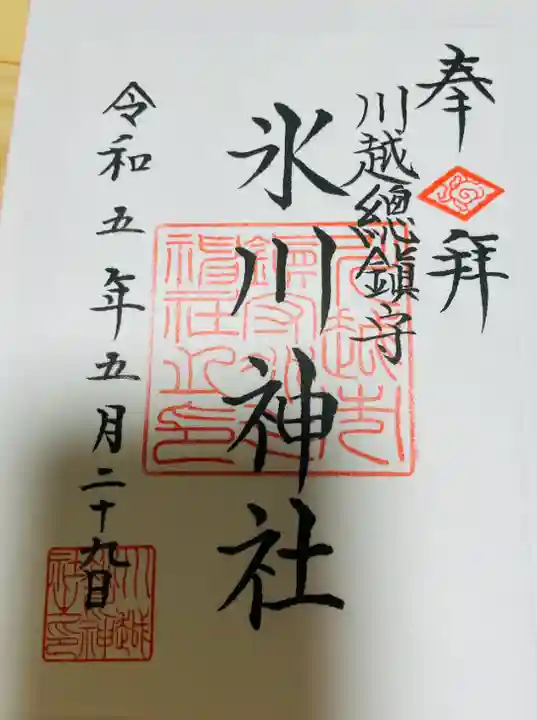 奉拜
川越總鎮守
氷川神社
令和五年五月二十九日